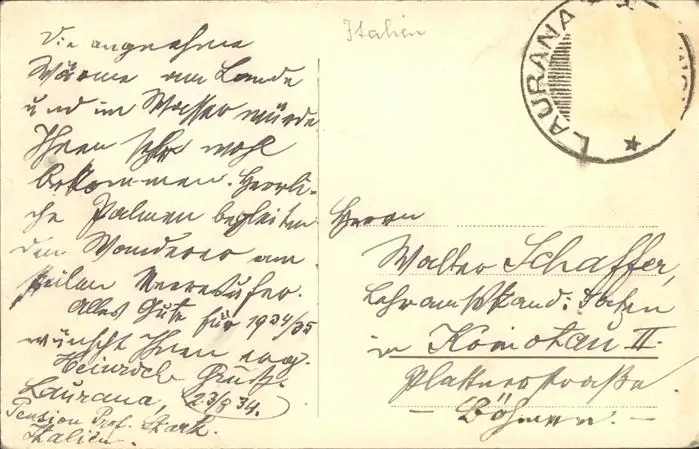 Italien
LAURANA
Die angenehme
Wärme am Lande
und im Wasser würde
Ihnen sehr wohl
bekommen. Herrli-
che Palmen begleiten
den Wanderer am
Meeresufer.
Alles Gute für 1934/35
wünscht Ihnen erg.
Heinrich
Laurana, 23/8 34.
Pension Prof. Stark.
Italien.
Herrn
Walter Schaffer,
Lehramtskand:
in Komotau II.
Plattnerstraße
- Böhmen. -